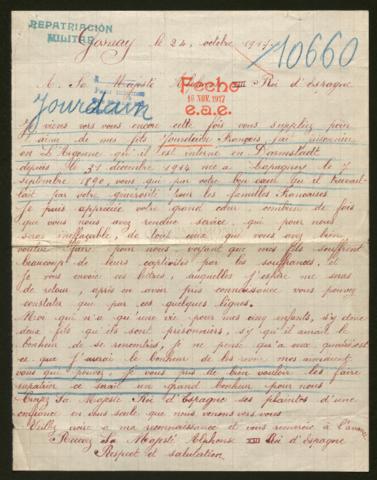 REPATRIACIÓN
MILITAR
Gosnay le 24 octobre 1917
10660
A Sa Majesté Alphonse XIII Roi d'Espagne
Feche
16 NOV. 1917
e.a.e.
Jourdain
Je viens vers vous encore cette fois vous suppliez pour
de mes fils Jourdain François
en L'Argonne où il est interné en Darmstadt
depuis le 31 décembre 1914 née a le 7
septembre 1890, vous qui par votre bon cœur
par votre générosité tous les familles Francaises
Je puis apprécié votre grand cœur combien de fois
que vous nous avez rendus service, qui pour nous
sera ineffaçable, de tous ceux, que vous avez bien
vouloir pour nous voyant que mes fils souffrent
beaucoup de leurs captivités par les souffrances, et
Je vous envoie ces lettres, auxquelles J'espère me seras
de retour, après en avoir pris connaissance vous pouvez
constater que par ces quelques lignes.
Moi qui n'a qu'une vie pour mes cinq enfants, s'y donc
deux fils qu'ils sont presonniers, s'y qu'il aurait le
bonheur de se rencontrés, je ne pense qu'a eux
ce que J'aurai le bonheur de les revoir
vous que pouvez, Je vous prie de bien vouloir les faire
rapatrier ce serait un grand bonheur pour nous
Croyez Sa Majesté Roi d'Espagne ses plaintes d'une
confience en vous seule que nous venons vers vous
Veuillez ma reconnaissance et vous remercie à l'avance
Recevez Sa Majesté Alphonse XIII Roi d'Espagne
Respect et salutation